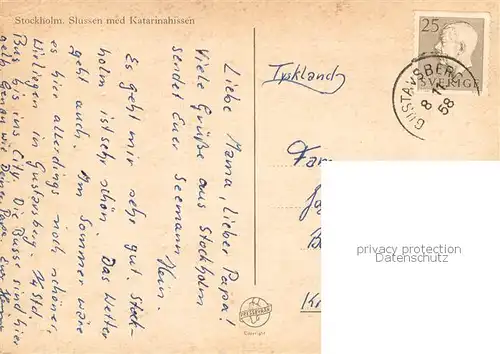 Stockholm. Slussen med Katarinahissen
Liebe Mama, lieber Papa!
Viele Grüße aus Stockholm
sendet Euer Seemann
Hein.
Es geht mir sehr gut. Stock-
holm ist sehr schön. Das Wetter
geht auch. Im Sommer wäre
es hier allerdings noch schöner.
Wir liegen in Gustavsberg. ½ Std.
Bus bis ins City. Die Busse sind hier
gelb. Genau wie Deiner Papa. Euer
Tyskland
25
SVERIGE
GUSTAVSBERG
8 11
58
Fam.
privacy protection
Copyright